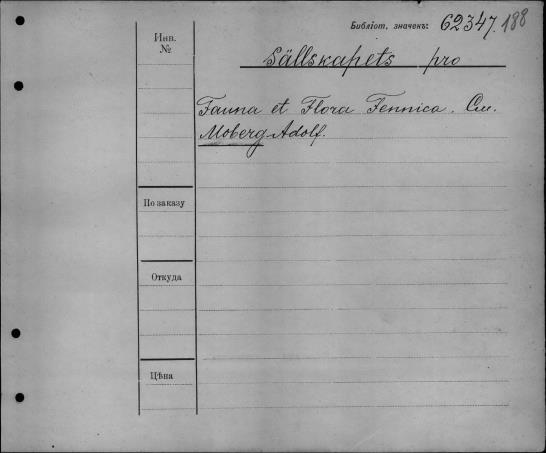 Библіот. значекъ: 62347. 188
Инв.
№
Sällskapets pro
Fauna et Flora Fennica. См.
Moberg Adolf.
По заказу
Откуда
Цѣна